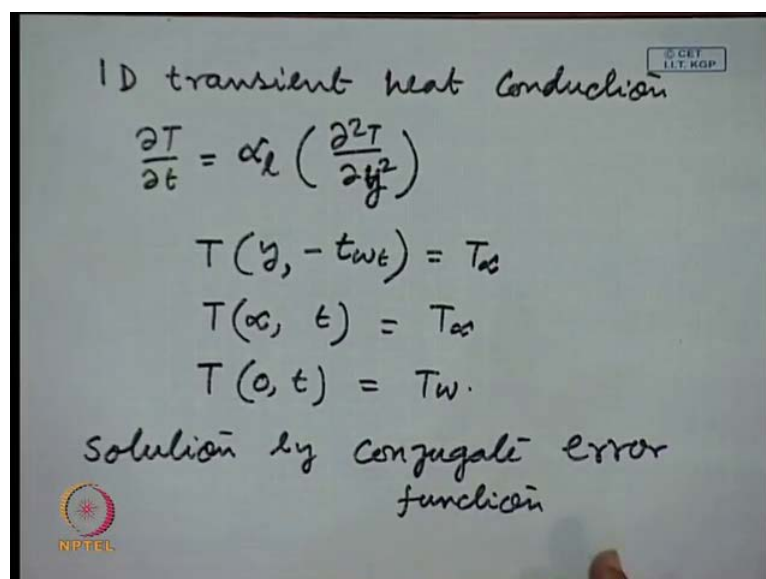 © CET
I.I.T. KGP
1D transient heat conduction
∂T/∂t = α_l (∂²T/∂y²)
T(y, -t_wt) = T_∞
T(∞, t) = T_∞
T(0, t) = T_w.
solution by conjugate error
function
NPTEL